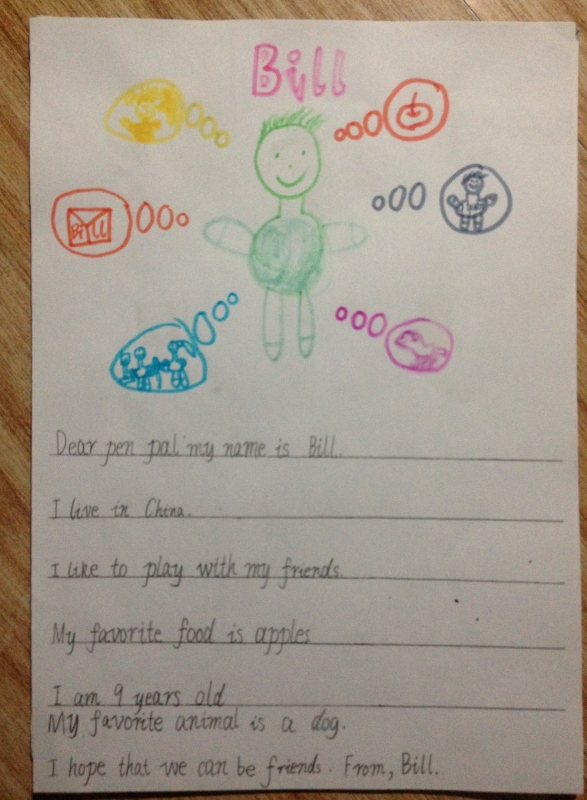 Bill
Bill
Dear pen pal my name is Bill.
I live in China.
I like to play with my friends.
My favorite food is apples
I am 9 years old
My favorite animal is a dog.
I hope that we can be friends. From, Bill.